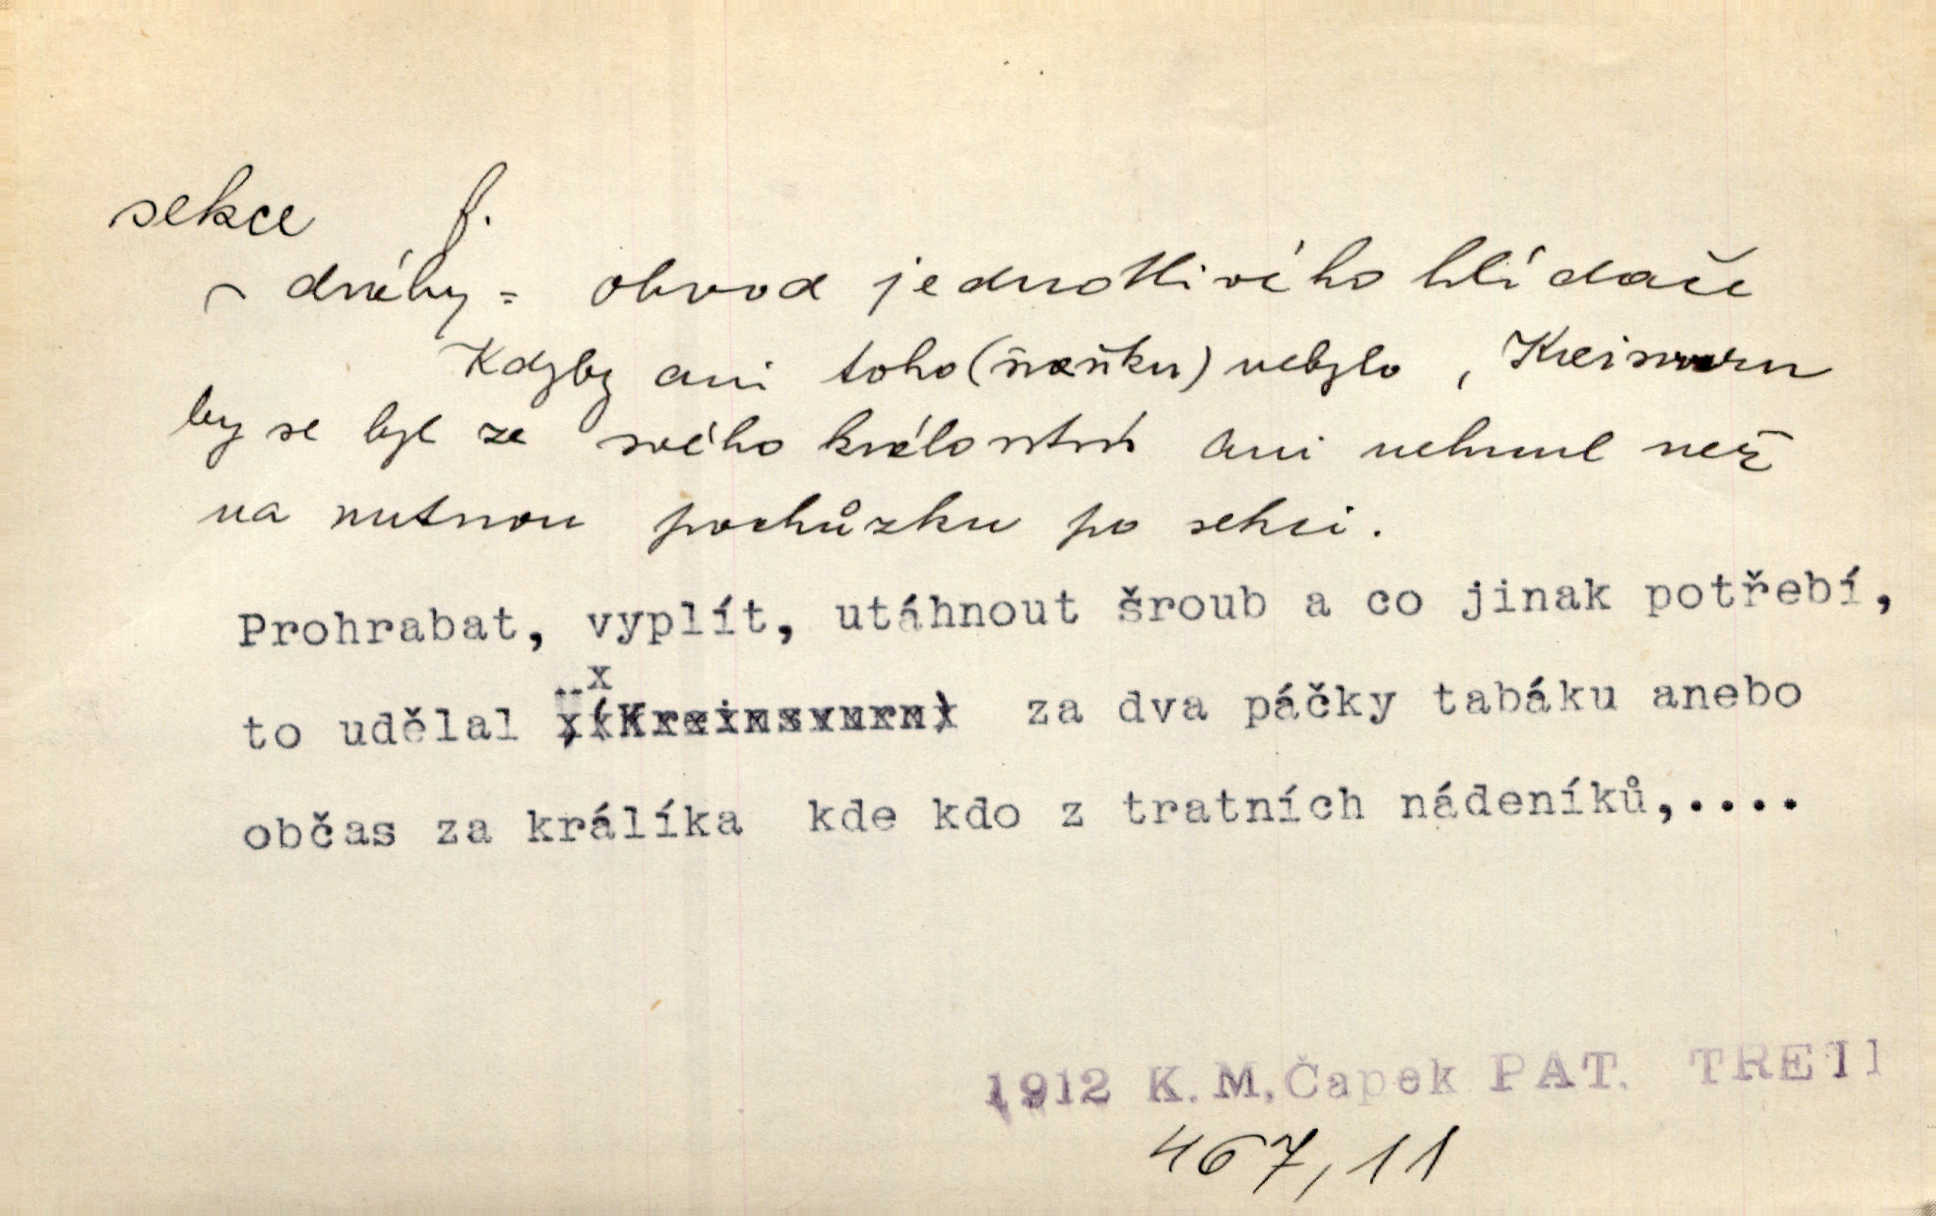 sekce f.
~ dráhy = obvod jednotlivého hlídače
Kdyby ani toho (šneňku) nebylo,
by se byl ze svého království ani nehnul než
na nutnou pochůzku po sekci.
Prohrabat, vyplít, utáhnout šroub a co jinak potřebí,
to udělal za dva páčky tabáku anebo
občas za králíka kde kdo z tratních nádeníků,....
1912 K. M. Čapek PAT. TRETI
467, 11